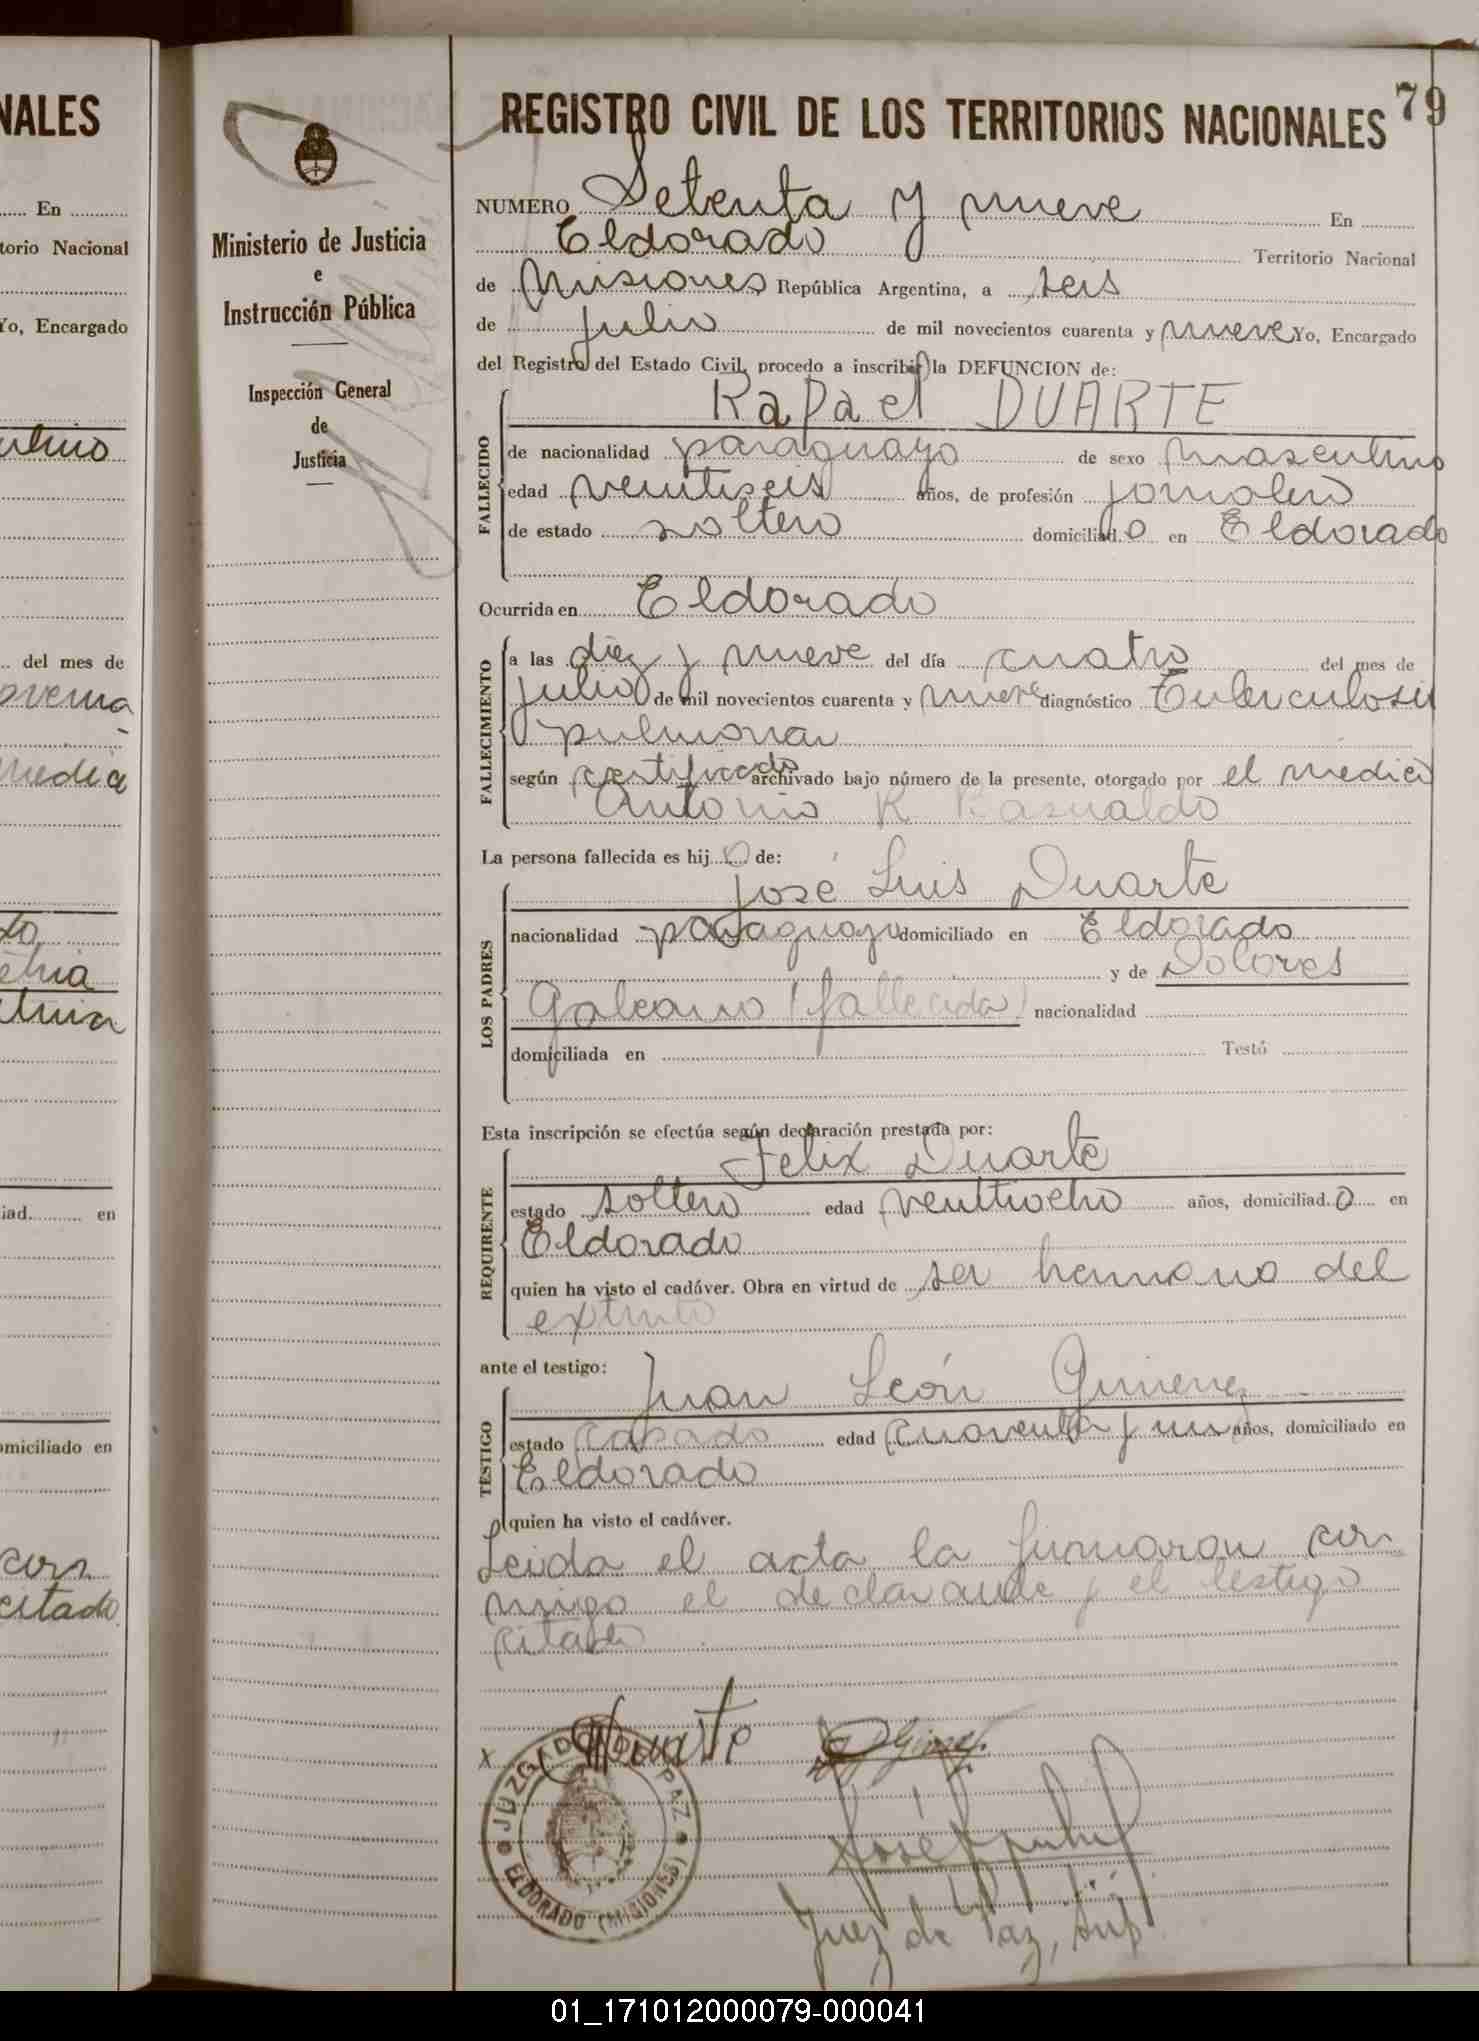 NALES
En
torio Nacional
Yo, Encargado
del mes de
iad. en
omiciliado en
citado
Ministerio de Justicia
e
Instrucción Pública
Inspección General
de
Justicia
REGISTRO CIVIL DE LOS TERRITORIOS NACIONALES 79
NUMERO Setenta y nueve En
Eldorado Territorio Nacional
de Misiones República Argentina, a seis
de julio de mil novecientos cuarenta y nueve Yo, Encargado
del Registro del Estado Civil, procedo a inscribir la DEFUNCION de:
Rafael DUARTE
FALLECIDO
de nacionalidad paraguayo de sexo masculino
edad veintiseis años, de profesión jornalero
de estado soltero domiciliado en Eldorado
Ocurrida en Eldorado
FALLECIMIENTO
a las diez y nueve del día cuatro del mes de
julio de mil novecientos cuarenta y nueve diagnóstico Tuberculosis
pulmonar
según certificado archivado bajo número de la presente, otorgado por el medico
Antonio R Basualdo
La persona fallecida es hijo de:
José Luis Duarte
LOS PADRES
nacionalidad paraguayo domiciliado en Eldorado
y de Dolores
Galeano (fallecida) nacionalidad
domiciliada en Testó
Esta inscripción se efectúa según declaración prestada por:
Felix Duarte
REQUIRENTE
estado soltero edad veintiocho años, domiciliado en
Eldorado
quien ha visto el cadáver. Obra en virtud de ser hermano del
extinto
ante el testigo:
Juan León Gimenez
TESTIGO
estado casado edad cuarenta y un años, domiciliado en
Eldorado
quien ha visto el cadáver.
Leida el acta la firmaron con
migo el declarante y el testigo
citado
x Duarte
JUZGADO DE PAZ
ELDORADO (MISIONES)
José
Juez de Paz, Sup.
01_171012000079-000041